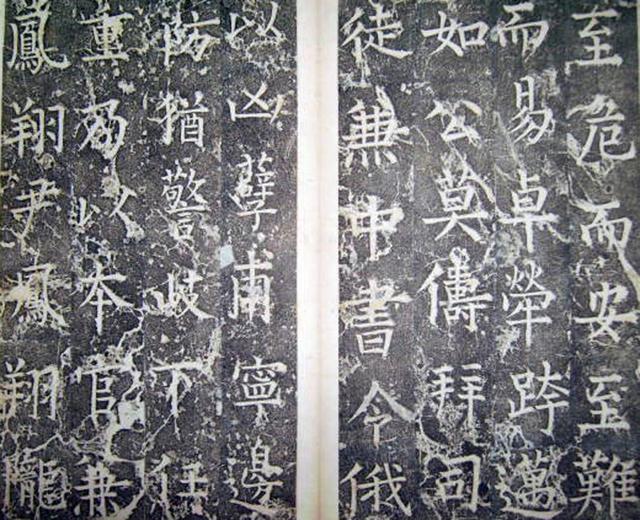 至危而安至難
而易卓犖跨邁
如公莫儔拜司
徒兼中書令俄
以凶孽甫寧邊
防猶警岐下任
重以本官兼
鳳翔尹鳳翔隴